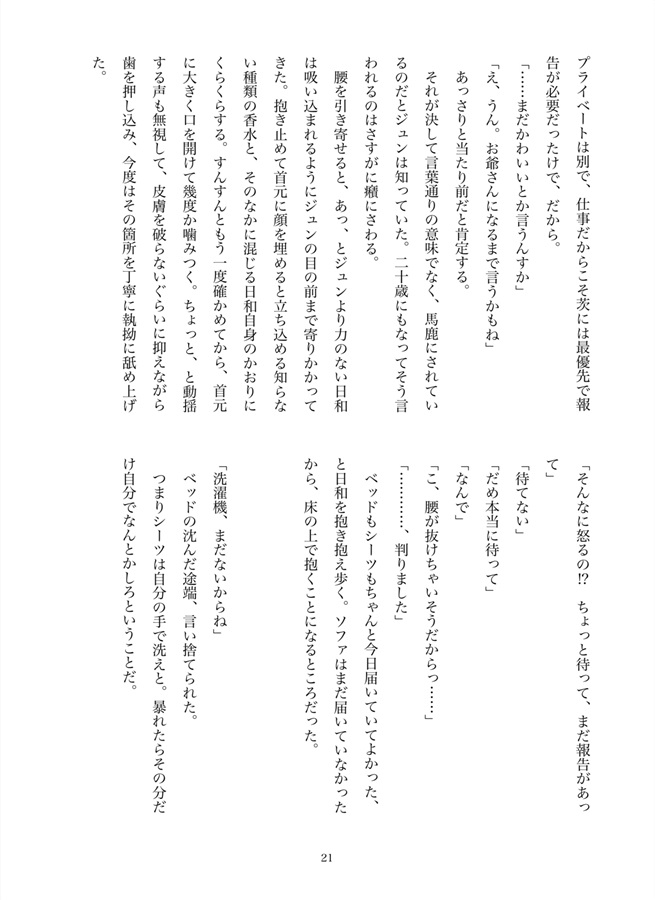 プライベートは別で、仕事だからこそ茨には最優先で報
告が必要だったけで、だから。
「……まだかわいいとか言うんすか」
「え、うん。お爺さんになるまで言うかもね」
あっさりと当たり前だと肯定する。
それが決して言葉通りの意味でなく、馬鹿にされてい
るのだとジュンは知っていた。二十歳にもなってそう言
われるのはさすがに癪にさわる。
腰を引き寄せると、あっ、とジュンより力のない日和
は吸い込まれるようにジュンの目の前まで寄りかかって
きた。抱き止めて首元に顔を埋めると立ち込める知らな
い種類の香水と、そのなかに混じる日和自身のかおりに
くらくらする。すんすんともう一度確かめてから、首元
に大きく口を開けて幾度か噛みつく。ちょっと、と動揺
する声も無視して、皮膚を破らないぐらいに抑えながら
歯を押し込み、今度はその箇所を丁寧に執拗に舐め上げ
た。
「そんなに怒るの!?　ちょっと待って、まだ報告があっ
て」
「待てない」
「だめ本当に待って」
「なんで」
「こ、腰が抜けちゃいそうだからっ……」
「…………、判りました」
ベッドもシーツもちゃんと今日届いていてよかった、
と日和を抱き抱え歩く。ソファはまだ届いていなかった
から、床の上で抱くことになるところだった。
「洗濯機、まだないからね」
ベッドの沈んだ途端、言い捨てられた。
つまりシーツは自分の手で洗えと。暴れたらその分だ
け自分でなんとかしろということだ。
21